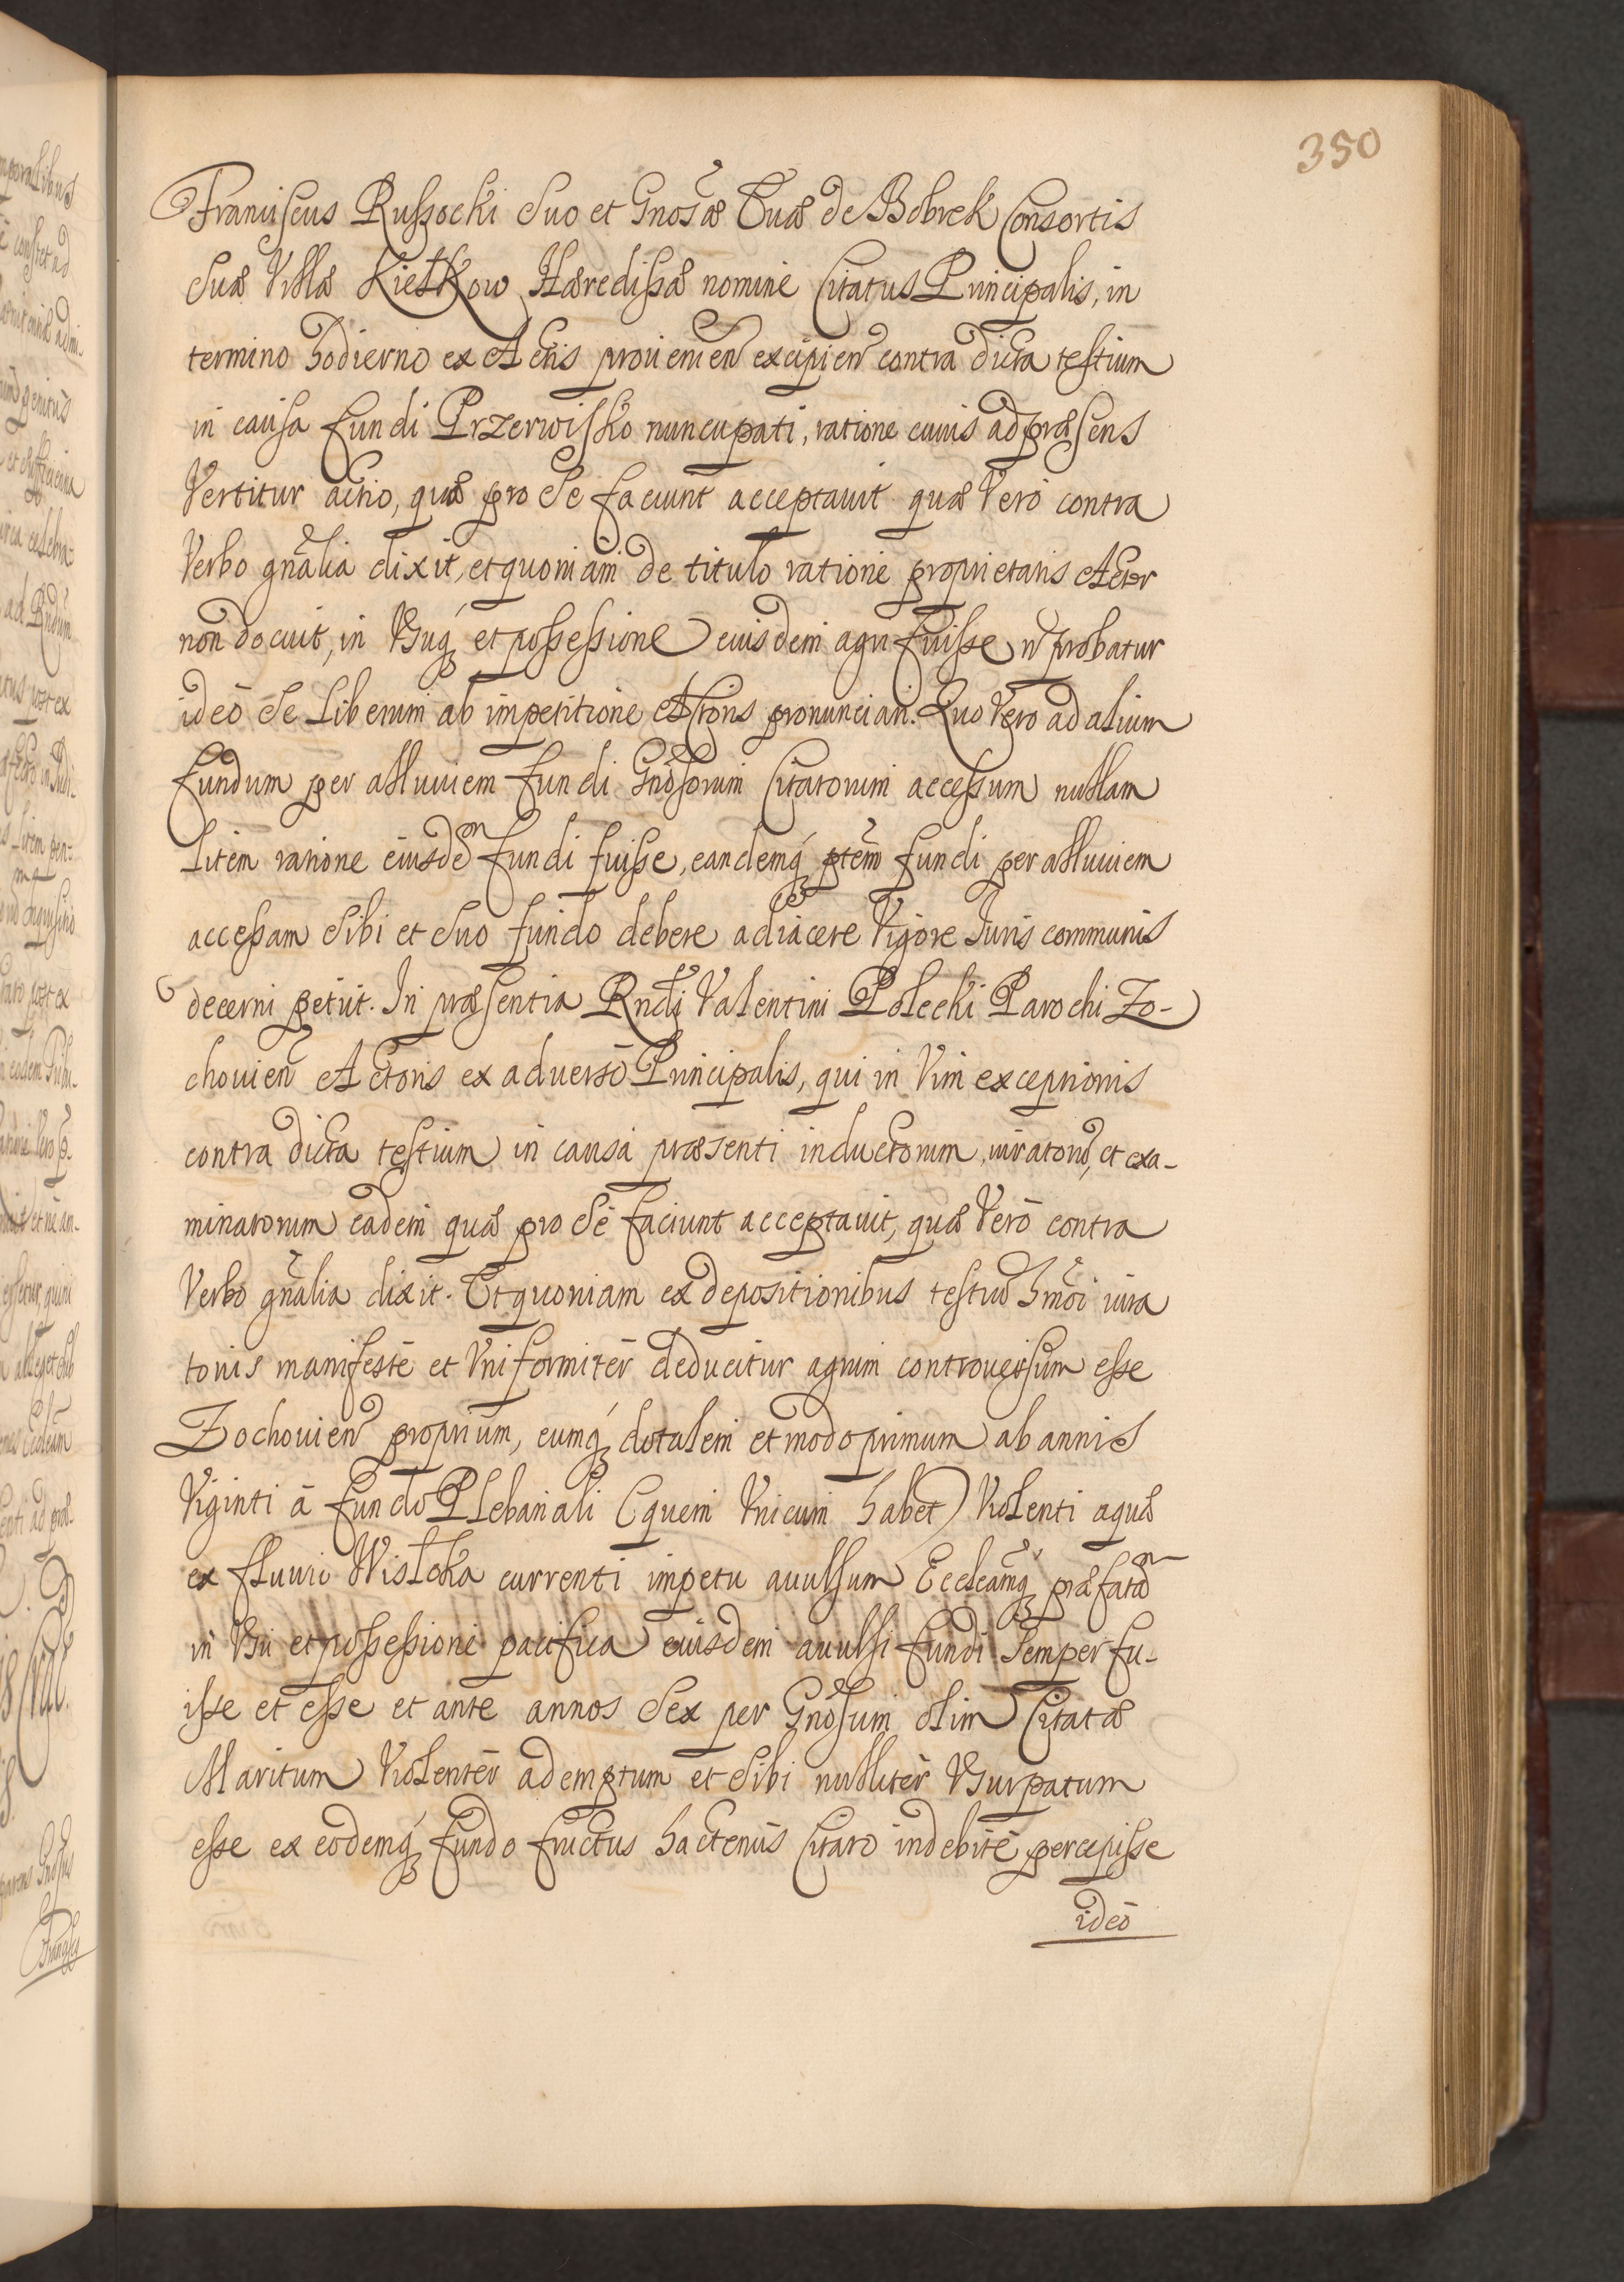 350
Franciscus Russocki Suo et Gnosæ Evæ de Bobrek Consortis
Suæ Villæ Kiełkow Hæredissæ nomine Citatus Principalis, in
termino hodierno ex Actis provenien̄ excipien̄ contra dicta testium
in causa fundi Przerwisko nuncupati, ratione cuius ad præsens
Vertitur actio, quæ pro Se faciunt acceptavit quæ Verò contra
Verbo gn̄alia dixit, et quoniam de titulo ratione proprietatis Actor
non docuit, in Vsuq́ et possessione eiusdem agri fuisse n̄ probatur
ideò Se Liberum ab impetitione Actoris pronunciari. Quo Vero ad alium
fundum per alluviem fundi Gnosorum Citatorum accessum nullam
Litem ratione eiusdem fundi fuisse, eandemq́ ptem fundi per alluviem
accessam Sibi et Suo fundo debere adiacere Vigore Juris communis
decerni petiit. In præsentia Rndi Valentini Polecki Parochi Zo-
chovien̄ Actoris ex adverso Principalis, qui in Vim exceptionis
contra dicta testium in causa præsenti inductorum, iuratorū, et exa-
minatorum eadem quæ pro Se faciunt acceptavit, quæ Verò contra
Verbo gn̄alia dixit. Et quoniam ex depositionibus testiū hmōi iura
toriis manifestè et Vniformitèr deducitur agrum controversum esse
Zochovien̄ proprium, eumq́ dotalem et modo primum ab annis
Viginti à fundo Plebanali (quem Vnicum habet) Violenti aquæ
ex fluvio Wisłoka currenti impetu avulsum Ecclēamq́ præfatam
in Vsu et possessione pacifica eiusdem avulsi fundi Semper fu-
isse et esse et ante annos Sex per Gnosum olim Citatæ
Maritum Violentèr ademptum et Sibi nullitèr Vsurpatum
esse ex eodemq́ fundo fructus hactenus Citato indebitè percepisse
ideò